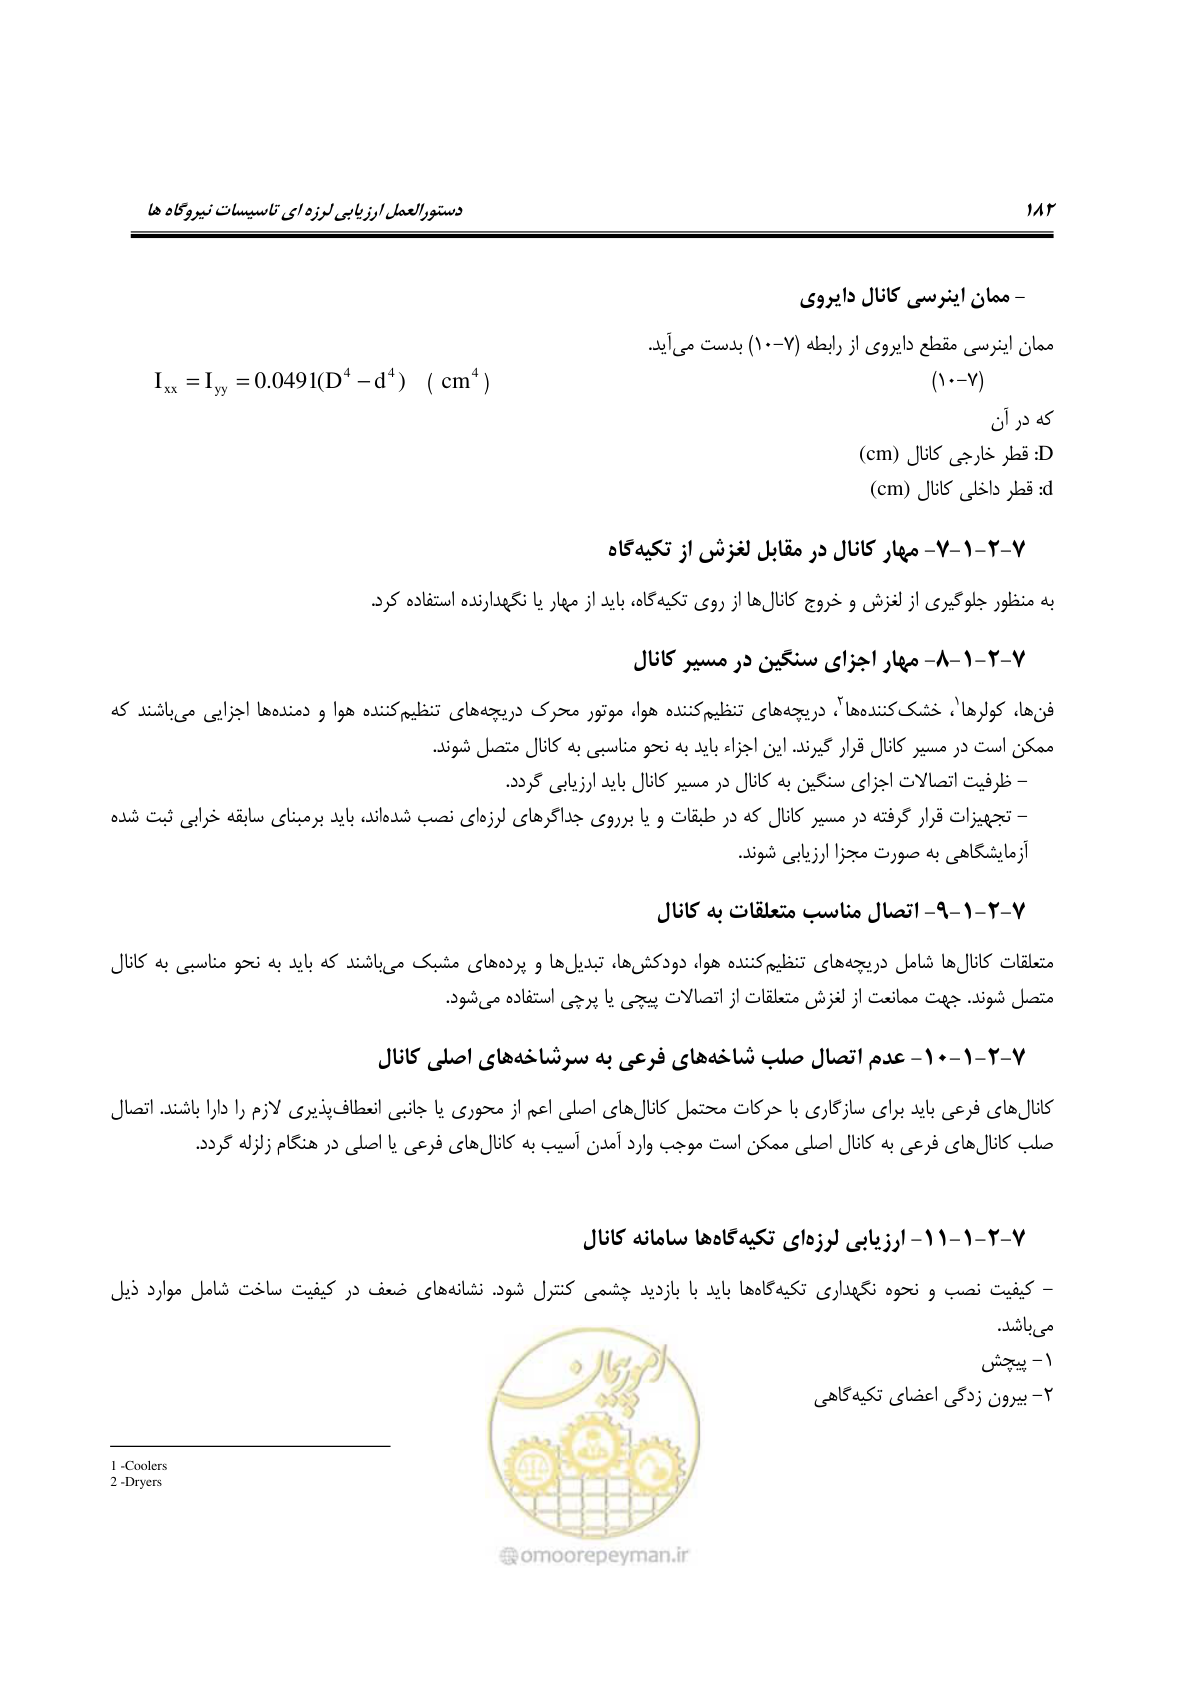 ۱۸۲ دستورالعمل ارزیابی لرزه ای تاسیسات نیروگاه ها
– ممان اینرسی کانال دایروی
ممان اینرسی مقطع دایروی از رابطه (۷–۱۰) بدست می‌آید.
(۷–۱۰) I_xx = I_yy = 0.0491(D⁴ – d⁴) ( cm⁴ )
که در آن
D: قطر خارجی کانال (cm)
d: قطر داخلی کانال (cm)
۷–۲–۱–۷– مهار کانال در مقابل لغزش از تکیه‌گاه
به منظور جلوگیری از لغزش و خروج کانال‌ها از روی تکیه‌گاه، باید از مهار یا نگهدارنده استفاده کرد.
۷–۲–۱–۸– مهار اجزای سنگین در مسیر کانال
فن‌ها، کولرها۱، خشک‌کننده‌ها۲، دریچه‌های تنظیم‌کننده هوا، موتور محرک دریچه‌های تنظیم‌کننده هوا و دمنده‌ها اجزایی می‌باشند که
ممکن است در مسیر کانال قرار گیرند. این اجزاء باید به نحو مناسبی به کانال متصل شوند.
– ظرفیت اتصالات اجزای سنگین به کانال در مسیر کانال باید ارزیابی گردد.
– تجهیزات قرار گرفته در مسیر کانال که در طبقات و یا برروی جداگرهای لرزه‌ای نصب شده‌اند، باید برمبنای سابقه خرابی ثبت شده
آزمایشگاهی به صورت مجزا ارزیابی شوند.
۷–۲–۱–۹– اتصال مناسب متعلقات به کانال
متعلقات کانال‌ها شامل دریچه‌های تنظیم‌کننده هوا، دودکش‌ها، تبدیل‌ها و پرده‌های مشبک می‌باشند که باید به نحو مناسبی به کانال
متصل شوند. جهت ممانعت از لغزش متعلقات از اتصالات پیچی یا پرچی استفاده می‌شود.
۷–۲–۱–۱۰– عدم اتصال صلب شاخه‌های فرعی به سرشاخه‌های اصلی کانال
کانال‌های فرعی باید برای سازگاری با حرکات محتمل کانال‌های اصلی اعم از محوری یا جانبی انعطاف‌پذیری لازم را دارا باشند. اتصال
صلب کانال‌های فرعی به کانال اصلی ممکن است موجب وارد آمدن آسیب به کانال‌های فرعی یا اصلی در هنگام زلزله گردد.
۷–۲–۱–۱۱– ارزیابی لرزه‌ای تکیه‌گاه‌ها سامانه کانال
– کیفیت نصب و نحوه نگهداری تکیه‌گاه‌ها باید با بازدید چشمی کنترل شود. نشانه‌های ضعف در کیفیت ساخت شامل موارد ذیل
می‌باشد.
۱– پیچش
۲– بیرون زدگی اعضای تکیه‌گاهی
1 -Coolers
2 -Dryers
امور پیمان
@omoorepeyman.ir